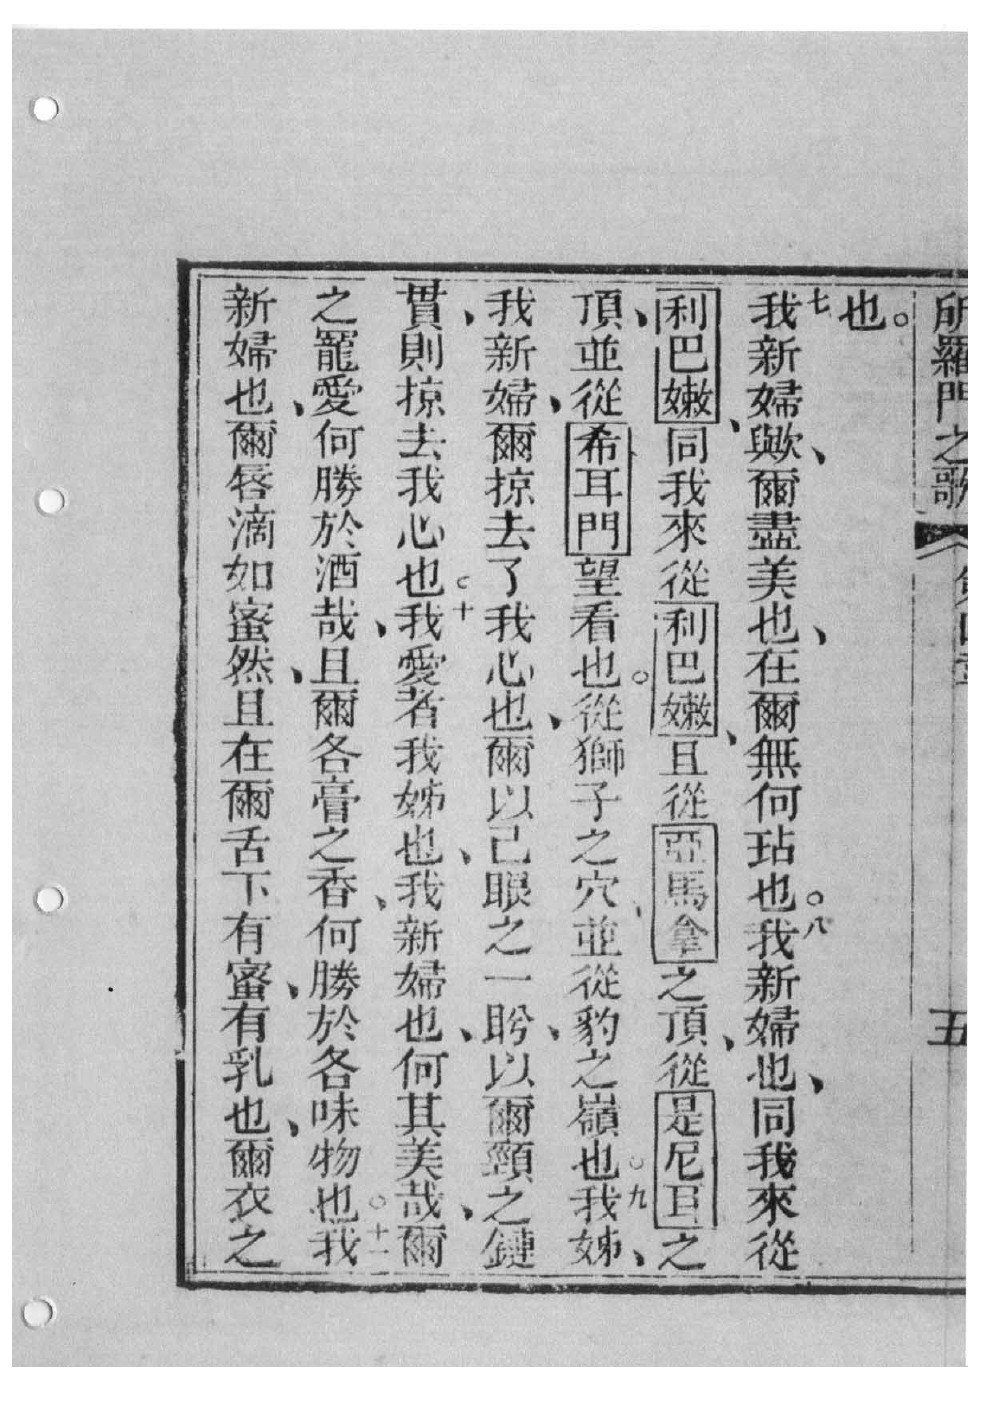 所羅門之歌 第四章 五
也。
七我新婦歟、爾盡美也、在爾無何玷也。八我新婦也、同我來從
利巴嫩、同我來從利巴嫩、且從亞馬拿之頂、從是尼耳之
頂、並從希耳門望看也。從獅子之穴、並從豹之嶺也。九我姊、
我新婦、爾掠去了我心也、爾以己眼之一盻、以爾頸之鏈
貫、則掠去我心也。十我愛者我姊也、我新婦也、何其美哉、爾
之寵愛何勝於酒哉、且爾各膏之香、何勝於各味物也。十一我
新婦也、爾唇滴如蜜然、且在爾舌下有蜜、有乳也、爾衣之